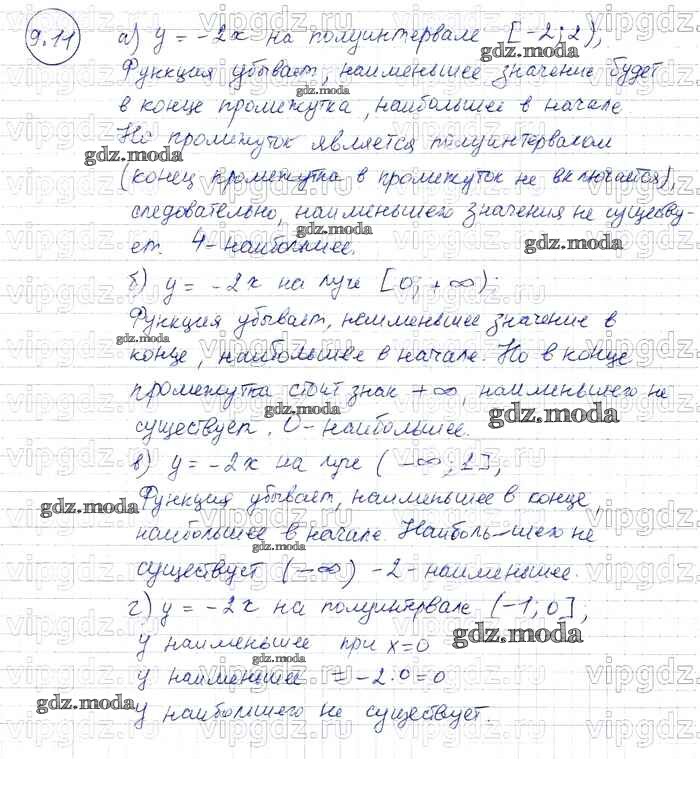 9.11
а) y = -2x на полуинтервале [-2; 2),
Функция убывает, наименьшее значение будет
в конце промежутка, наибольшее в начале
Но промежуток является полуинтервалом
(конец промежутка в промежуток не включается),
следовательно, наименьшего значения не существу-
ет. 4 - наибольшее.
б) y = -2x на луче [0; +∞):
Функция убывает, наименьшее значение в
конце, наибольшее в начале. Но в конце
промежутка стоит знак +∞, наименьшего не
существует. 0 - наибольшее.
в) y = -2x на луче (-∞; 1],
Функция убывает, наименьшее в конце,
наибольшее в начале. Наиболь-шего не
существует (-∞) -2 - наименьшее.
г) y = -2x на полуинтервале (-1; 0],
y наименьшее при x=0
y наименьшее = -2·0=0
y наибольшего не существует.
gdz.moda
vipgdz.ru